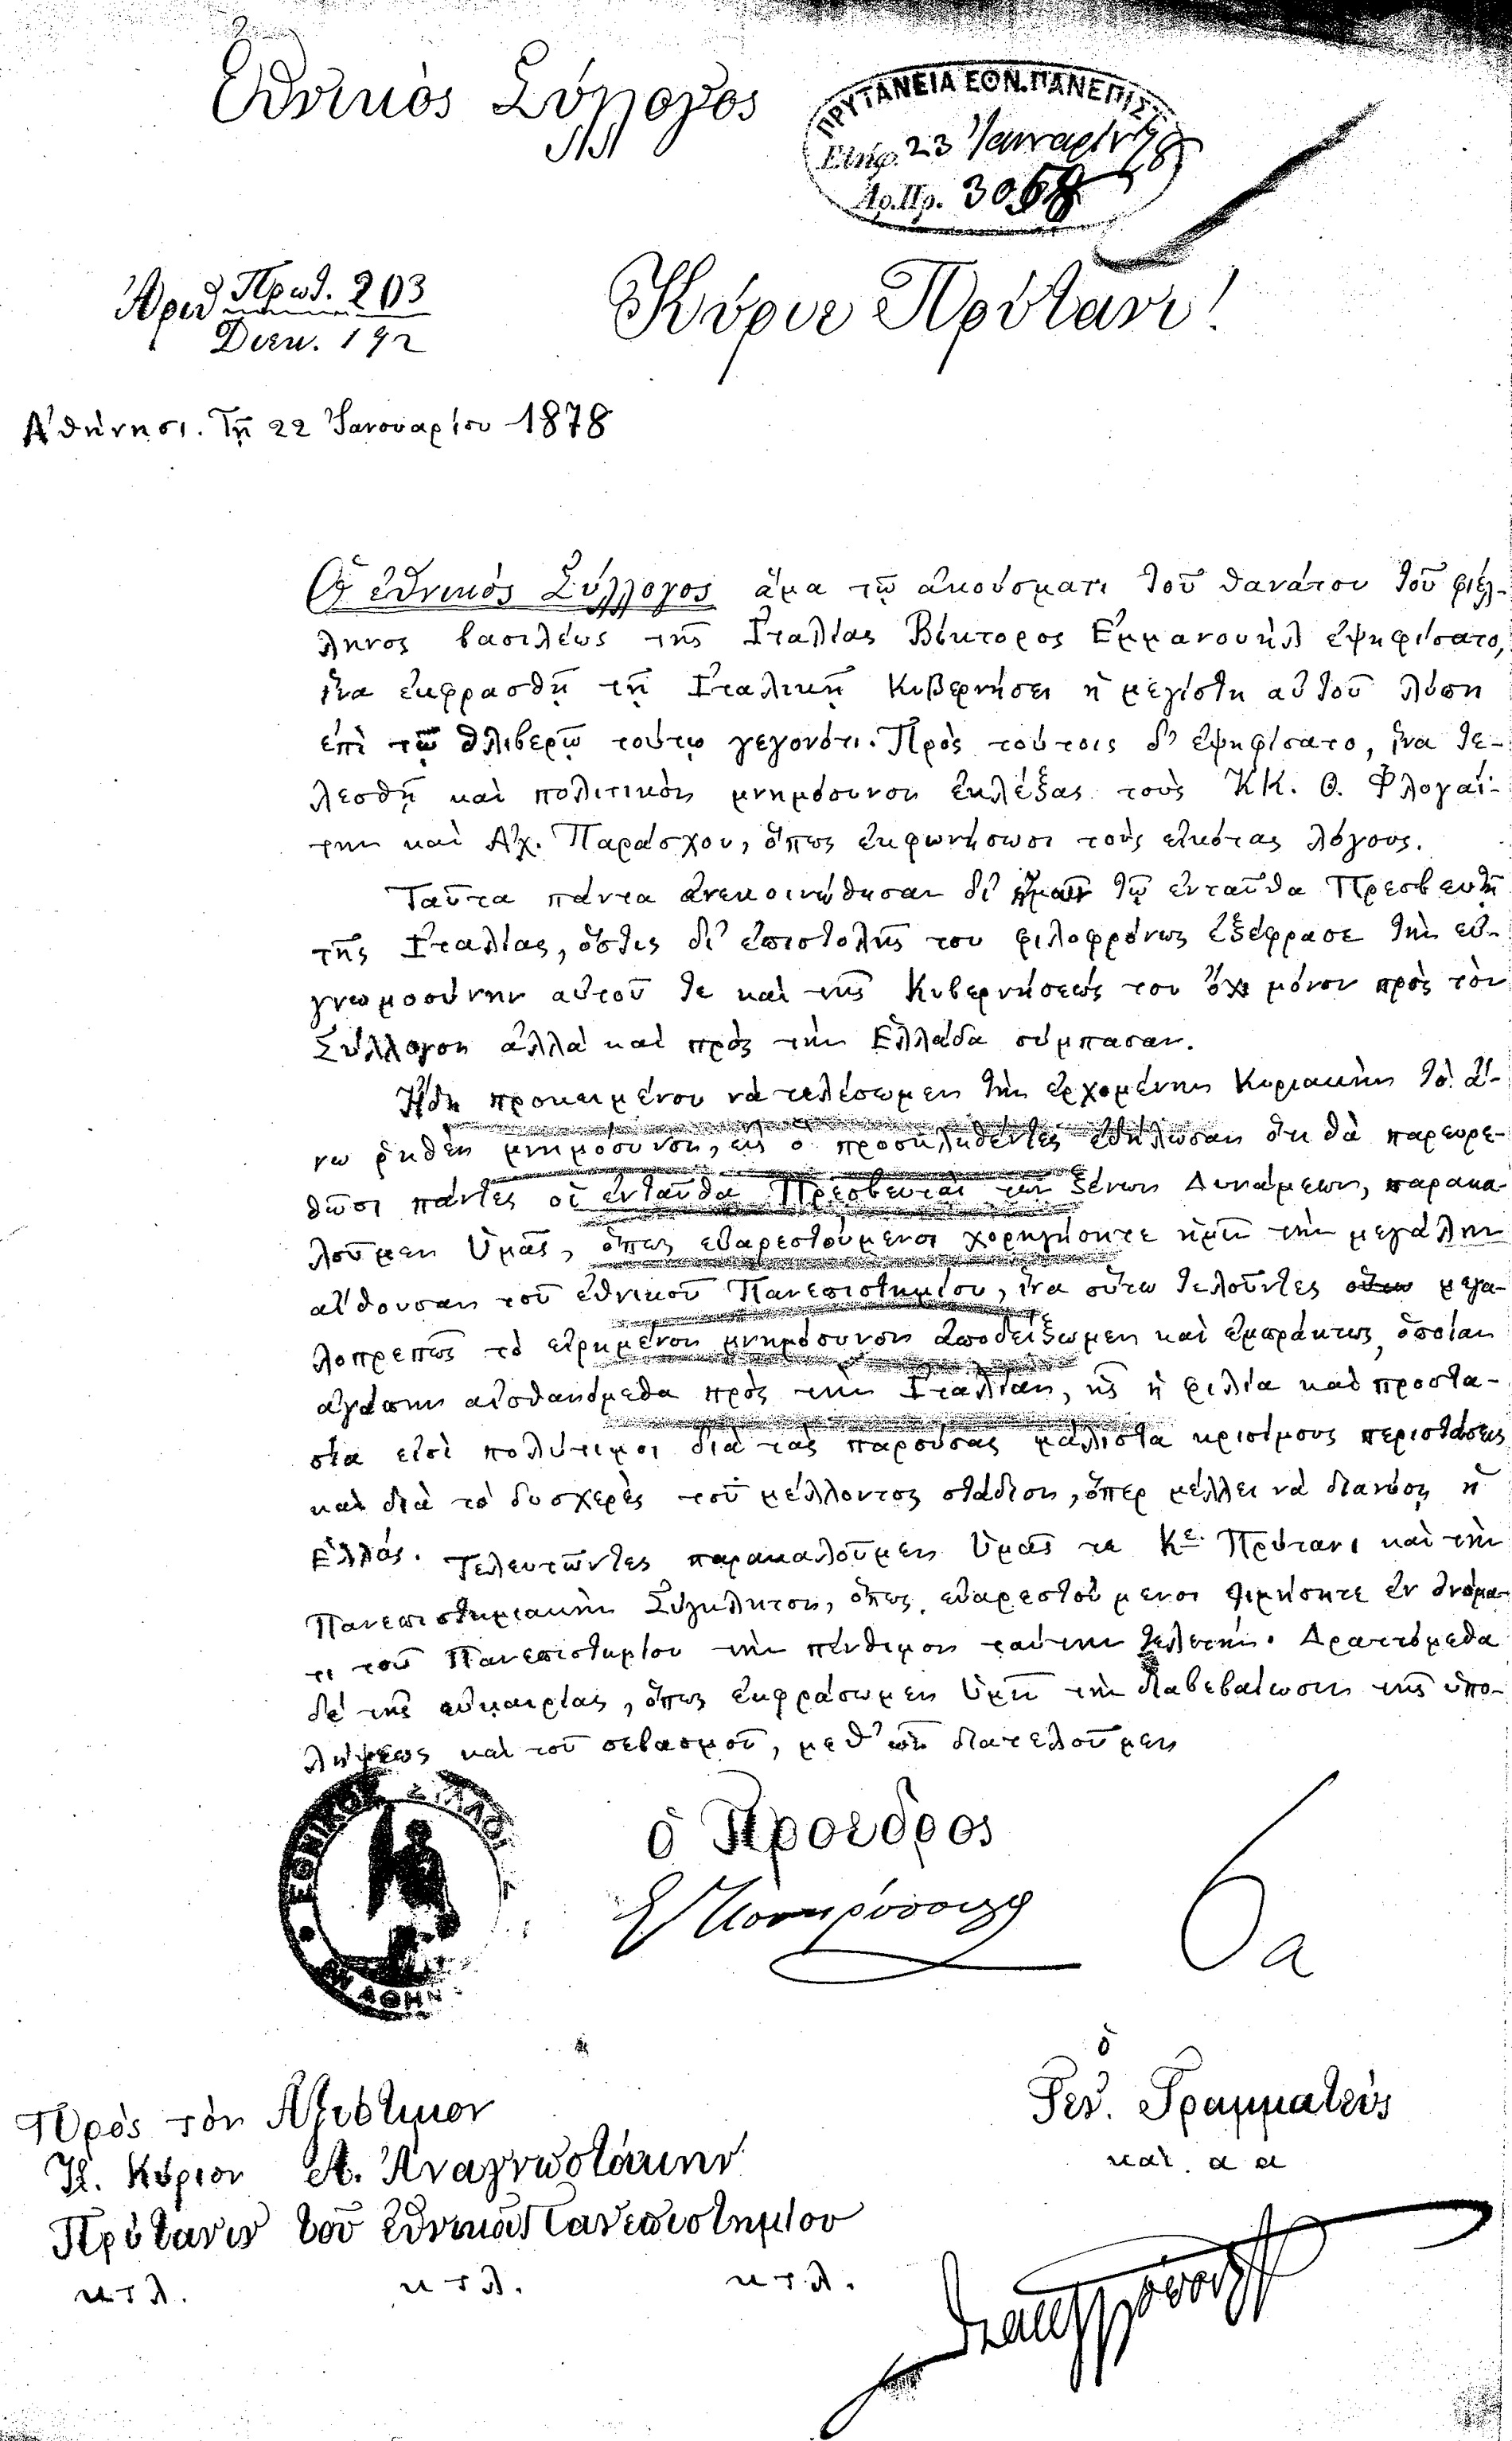 Ἐθνικὸς Σύλλογος
ΠΡΥΤΑΝΕΙΑ ΕΘΝ. ΠΑΝΕΠΙΣΤ
Ελήφ. 23 Ἰανουαρίου 78
Αρ. Πρ. 3058
Ἀριθ Πρωτ. 203
Διεκ. 192
Κύριε Πρύτανι!
Ἀθήνησι. Τῇ 22 Ἰανουαρίου 1878
Ὁ ἐθνικὸς Σύλλογος ἅμα τῷ ἀκούσματι τοῦ θανάτου τοῦ φιλέλ-
ληνος βασιλέως τῆς Ἰταλίας Βίκτορος Ἐμμανουὴλ ἐψηφίσατο,
ἵνα ἐκφρασθῇ τῇ Ἰταλικῇ Κυβερνήσει ἡ μεγίστη αὐτοῦ λύπη
ἐπὶ τῷ θλιβερῷ τούτῳ γεγονότι. Πρὸς τούτοις δ' ἐψηφίσατο, ἵνα τε-
λεσθῇ καὶ πολιτικὸν μνημόσυνον ἐκλέξας τοὺς ΚΚ. Θ. Φλογαΐ-
την καὶ Ἀχ. Παράσχον, ὅπως ἐκφωνήσωσι τοὺς εἰκότας λόγους.
Ταῦτα πάντα ἀνεκοινώθησαν δι' ἡμῶν τῷ ἐνταῦθα Πρεσβευτῇ
τῆς Ἰταλίας, ὅστις δι' ἐπιστολῆς του φιλοφρόνως ἐξέφρασε τὴν εὐ-
γνωμοσύνην αὐτοῦ τε καὶ τῆς Κυβερνήσεώς του ὄχι μόνον πρὸς τὸν
Σύλλογον ἀλλὰ καὶ πρὸς τὴν Ἑλλάδα σύμπασαν.
Ἤδη προκειμένου νὰ τελέσωμεν τὴν ἐρχομένην Κυριακὴν τὸ ἄ-
νω ῥηθὲν μνημόσυνον, εἰς ὃ προσκληθέντες ἐδήλωσαν ὅτι θὰ παρευρε-
θῶσι πάντες οἱ ἐνταῦθα Πρεσβευταὶ τῶν ξένων Δυνάμεων, παρακα-
λοῦμεν Ὑμᾶς, ὅπως εὐαρεστούμενοι χορηγήσητε ἡμῖν τὴν μεγάλην
αἴθουσαν τοῦ ἐθνικοῦ Πανεπιστημίου, ἵνα οὕτω τελοῦντες οὕτω μεγα-
λοπρεπῶς τὸ εἰρημένον μνημόσυνον ἀποδείξωμεν καὶ ἐμπράκτως, ὁποίαν
ἀγάπην αἰσθανόμεθα πρὸς τὴν Ἰταλίαν, ἧς ἡ φιλία καὶ προστα-
σία εἰσὶ πολύτιμοι διὰ τὰς παρούσας μάλιστα κρισίμους περιστάσεις
καὶ διὰ τὸ δυσχερὲς τοῦ μέλλοντος στάδιον, ὅπερ μέλλει νὰ διανύσῃ ἡ
Ἑλλάς. Τελευτῶντες παρακαλοῦμεν Ὑμᾶς τε Κε Πρύτανι καὶ τὴν
Πανεπιστημιακὴν Σύγκλητον, ὅπως εὐαρεστούμενοι τιμήσητε ἐν ὀνόμα-
τι τοῦ Πανεπιστημίου τὴν πένθιμον ταύτην τελετήν. Δραττόμεθα
δὲ τῆς εὐκαιρίας, ὅπως ἐκφράσωμεν Ὑμῖν τὴν διαβεβαίωσιν τῆς ὑπο-
λήψεως καὶ τοῦ σεβασμοῦ, μεθ' ὧν διατελοῦμεν
ΕΘΝΙΚΟΣ ΣΥΛΛΟΓ
ΕΝ ΑΘΗΝ
ὁ Πρόεδρος
6α
ὁ
Γεν. Γραμματεὺς
καὶ α α
Πρὸς τὸν Ἀξιότιμον
Κύριον Α. Ἀναγνωστάκην
Πρύτανιν τοῦ ἐθνικοῦ Πανεπιστημίου
κτλ. κτλ. κτλ.